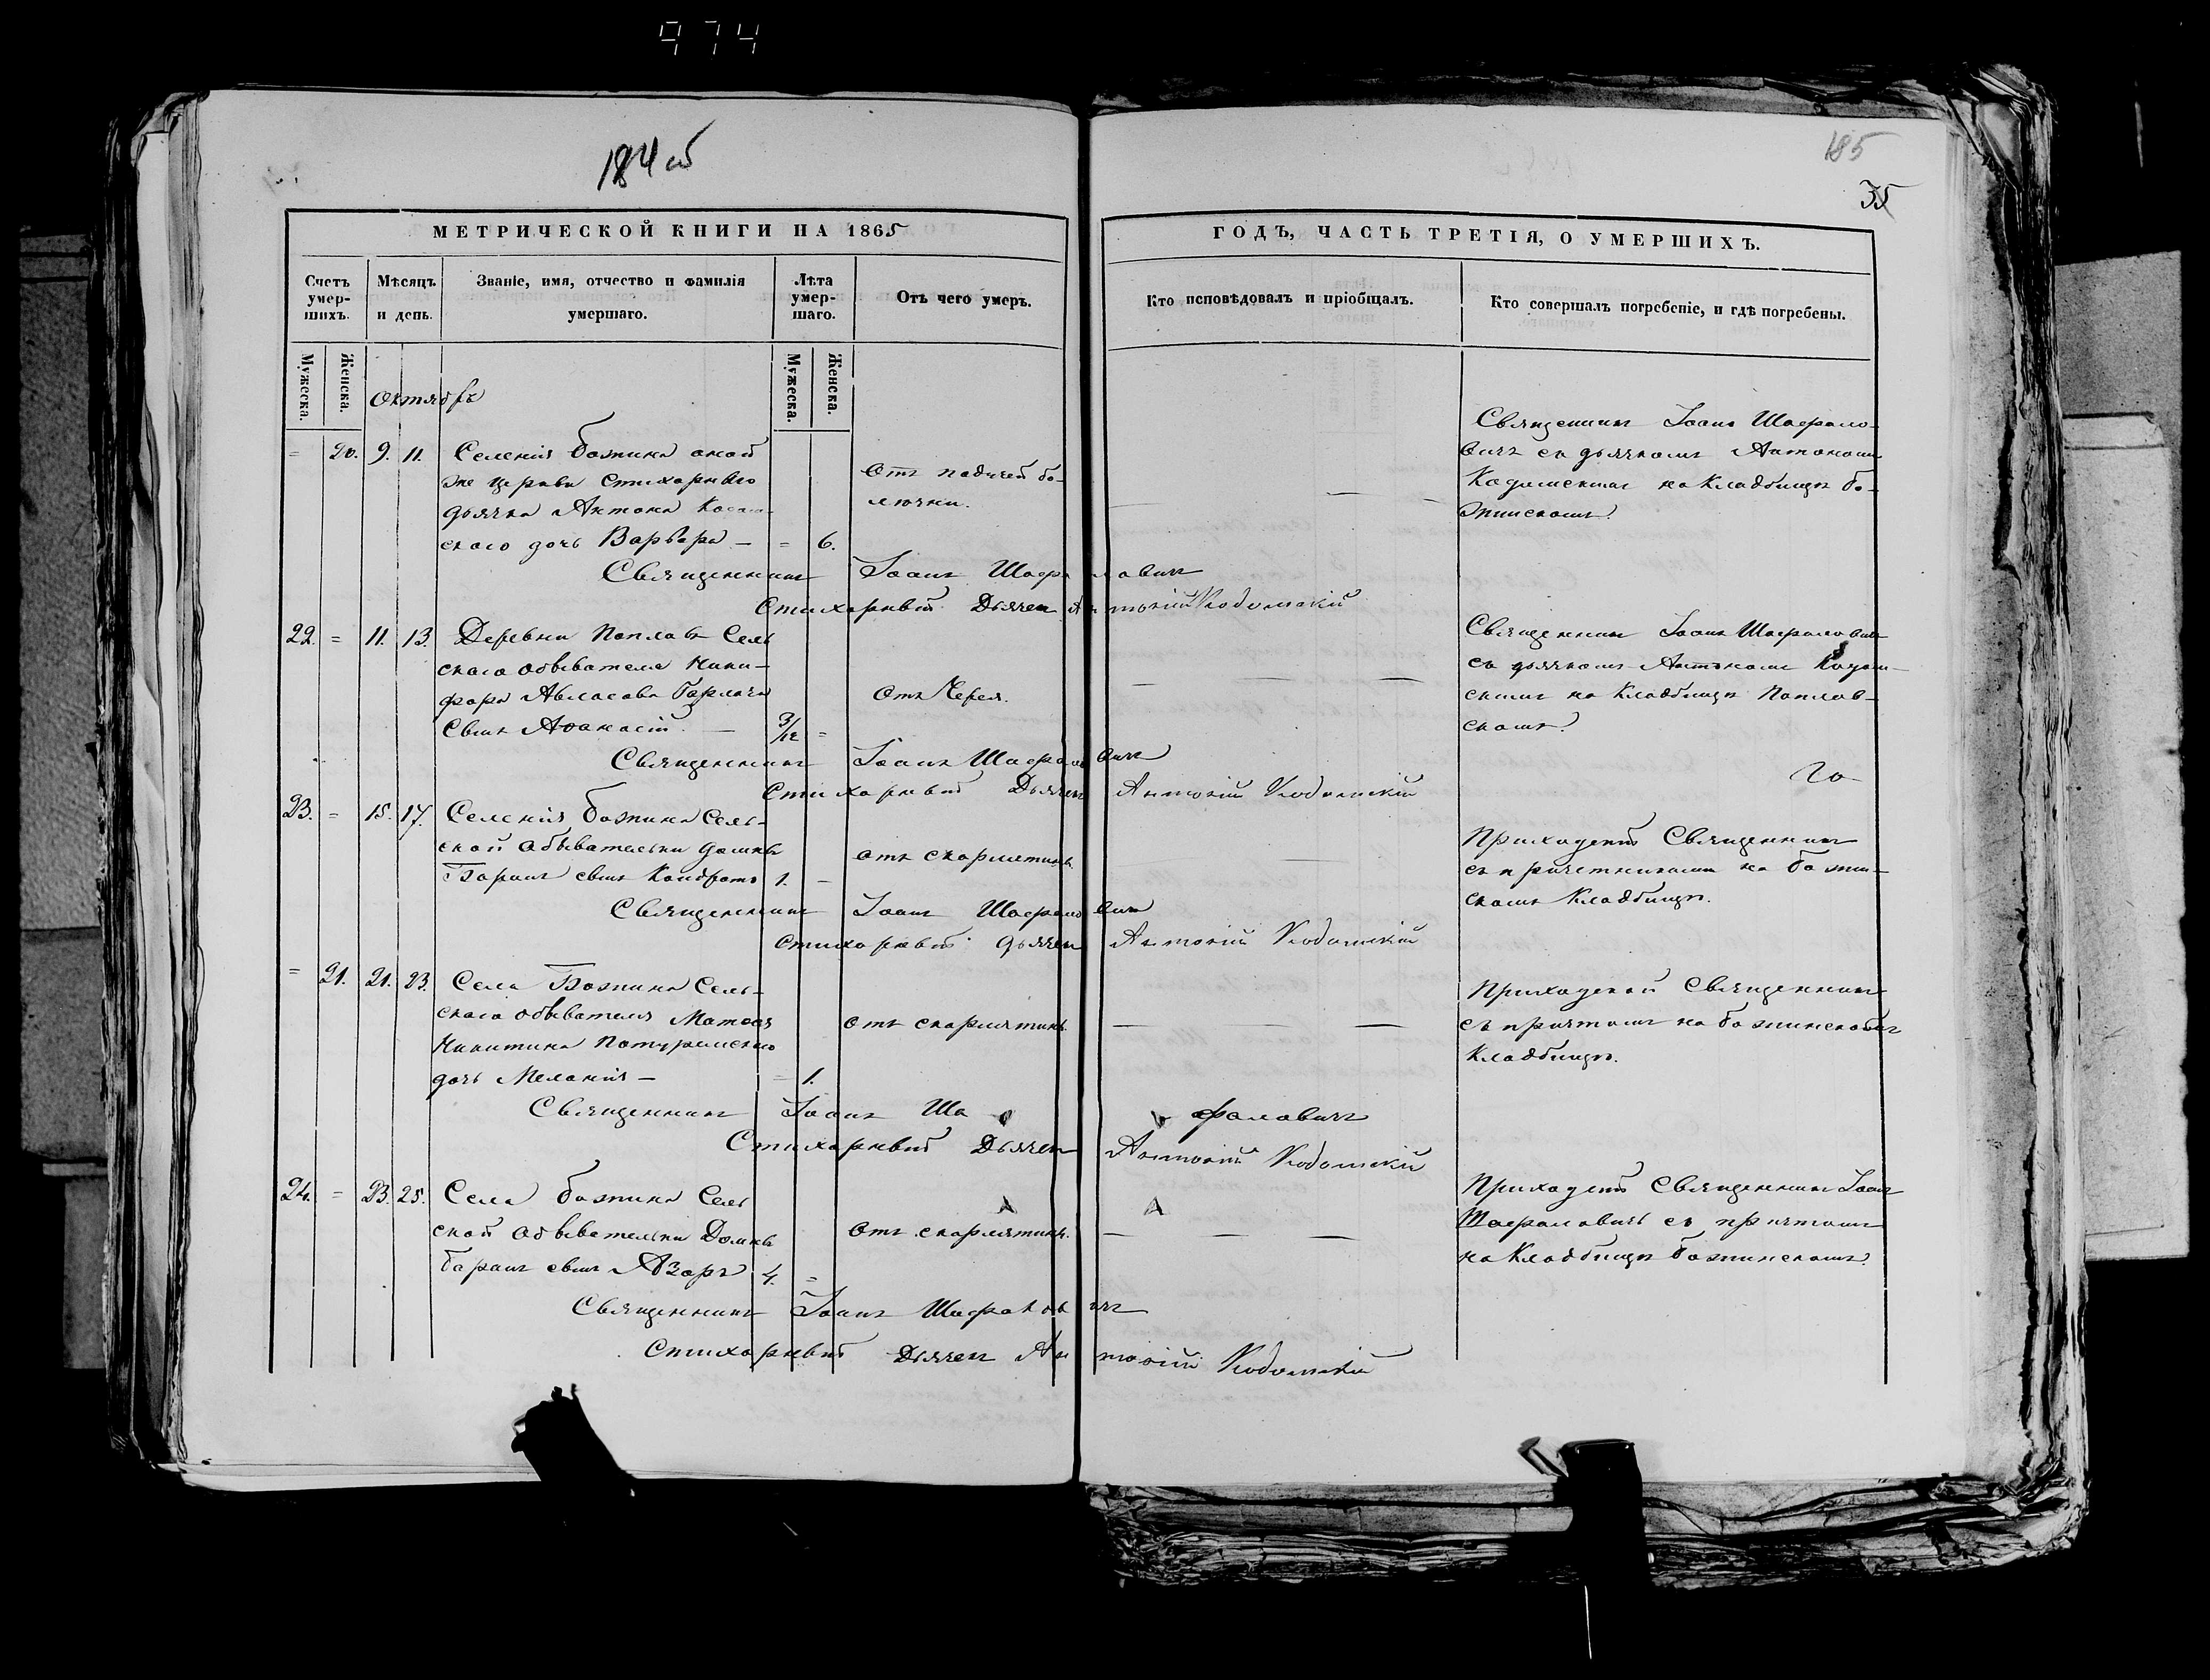 974
184 об
185
35
МЕТРИЧЕСКОЙ КНИГИ НА 1865
ГОДЪ, ЧАСТЬ ТРЕТІЯ, О УМЕРШИХЪ.
Счетъ умер-шихъ.
Мѣсяцъ и день.
Званіе, имя, отчество и фамилія умершаго.
Лѣта умер-шаго.
Отъ чего умеръ.
Кто исповѣдовалъ и пріобщалъ.
Кто совершалъ погребеніе, и гдѣ погребены.
Мужеска.
Женска.
Мужеска.
Женска.
Октябрь
= 20. 9. 11. Селенія Божика оной
же церкви Стихарнаго
дьячка Антона
скаго дочь Варвара — = 6.
Отъ падучей бо-
лючки.
Священникъ Іоаннъ Шафало-
вичъ съ дьячкомъ Антономъ
на кладбищѣ Бо-
жикскомъ.
Священникъ Іоаннъ Шафаловичъ
Стихарный Дьячекъ Антоній
22. = 11. 13. Деревни Поплавъ Сель
скаго обывателя Ники-
фора Авласова
Сынъ Аѳанасій. — 3/12 =
Отъ
Священникъ Іоаннъ Шафаловичъ
съ дьячкомъ Антономъ
скимъ на кладбищѣ Поплав-
скомъ.
Священникъ Іоаннъ Шафаловичъ
Стихарный Дьячекъ Антоній
23. = 15. 17. Селенія Божика Сель-
ской обывательки Домны
Баранъ сынъ Кондратъ 1. —
отъ скарлятины
Приходскій Священникъ
съ причетниками на Божи-
скомъ кладбищѣ.
Священникъ Іоаннъ Шафаловичъ
Стихарный дьячекъ Антоній
= 21. 21. 23. Села Божика Сель-
скаго обывателя Матѳея
Никитина
дочь Меланія — = 1.
отъ скарлятины
Приходской Священникъ
съ причтомъ на Божикскомъ
кладбищѣ.
Священникъ Іоаннъ Шафаловичъ
Стихарный Дьячекъ Антоній
24. = 23. 25. Села Божика Сель
ской обывательки Домны
Баранъ сынъ Азаръ 4. =
отъ скарлятины.
Приходскій Священникъ Іоаннъ
Шафаловичъ съ причтомъ
на кладбищѣ Божикскомъ.
Священникъ Іоаннъ Шафаловичъ
Стихарный Дьячекъ Антоній